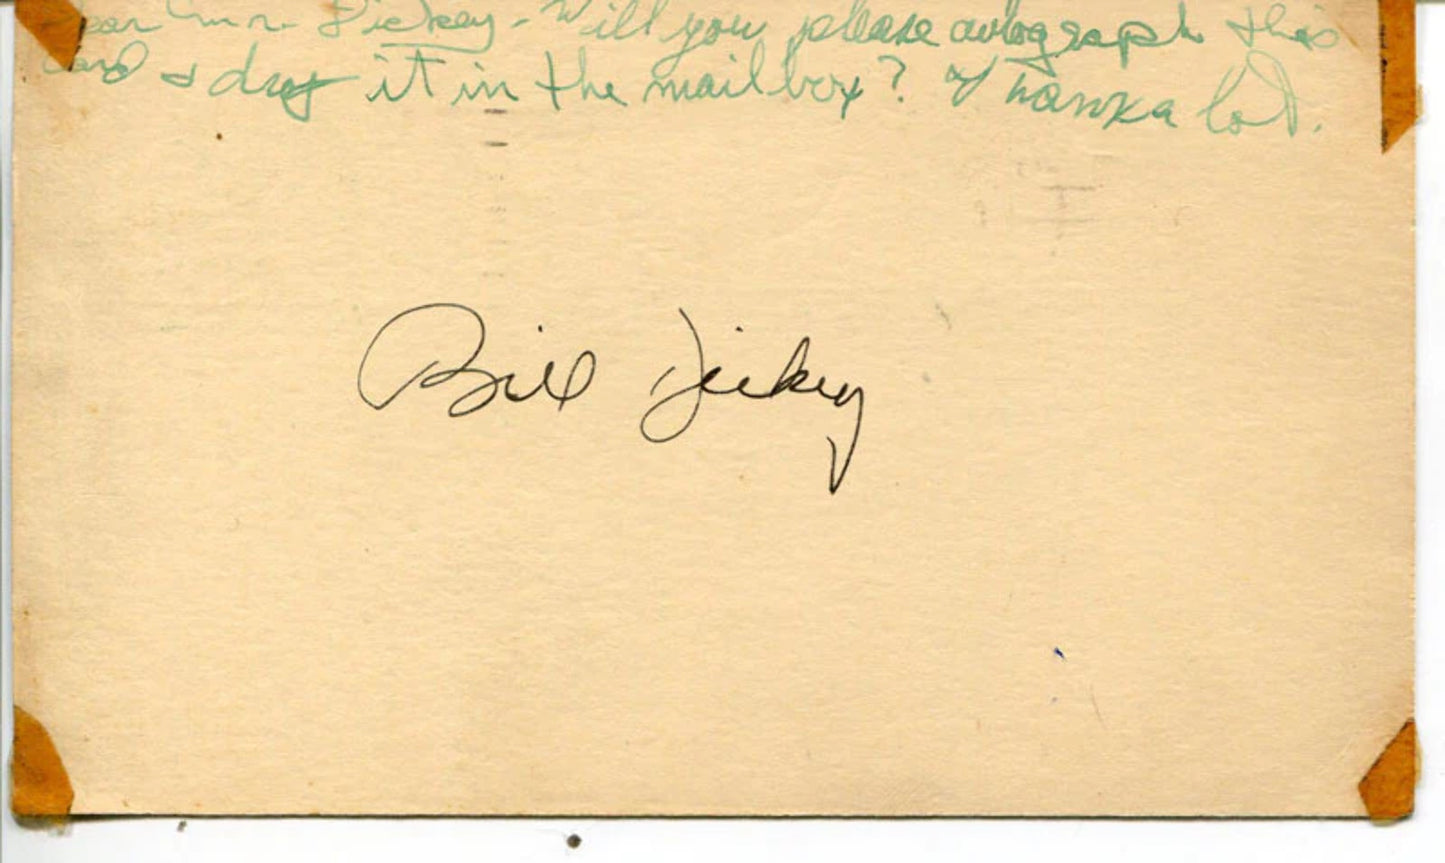 Dear Mr. Dickey - Will you please autograph this
card & drop it in the mail box? Thanks a lot.
Bill Dickey